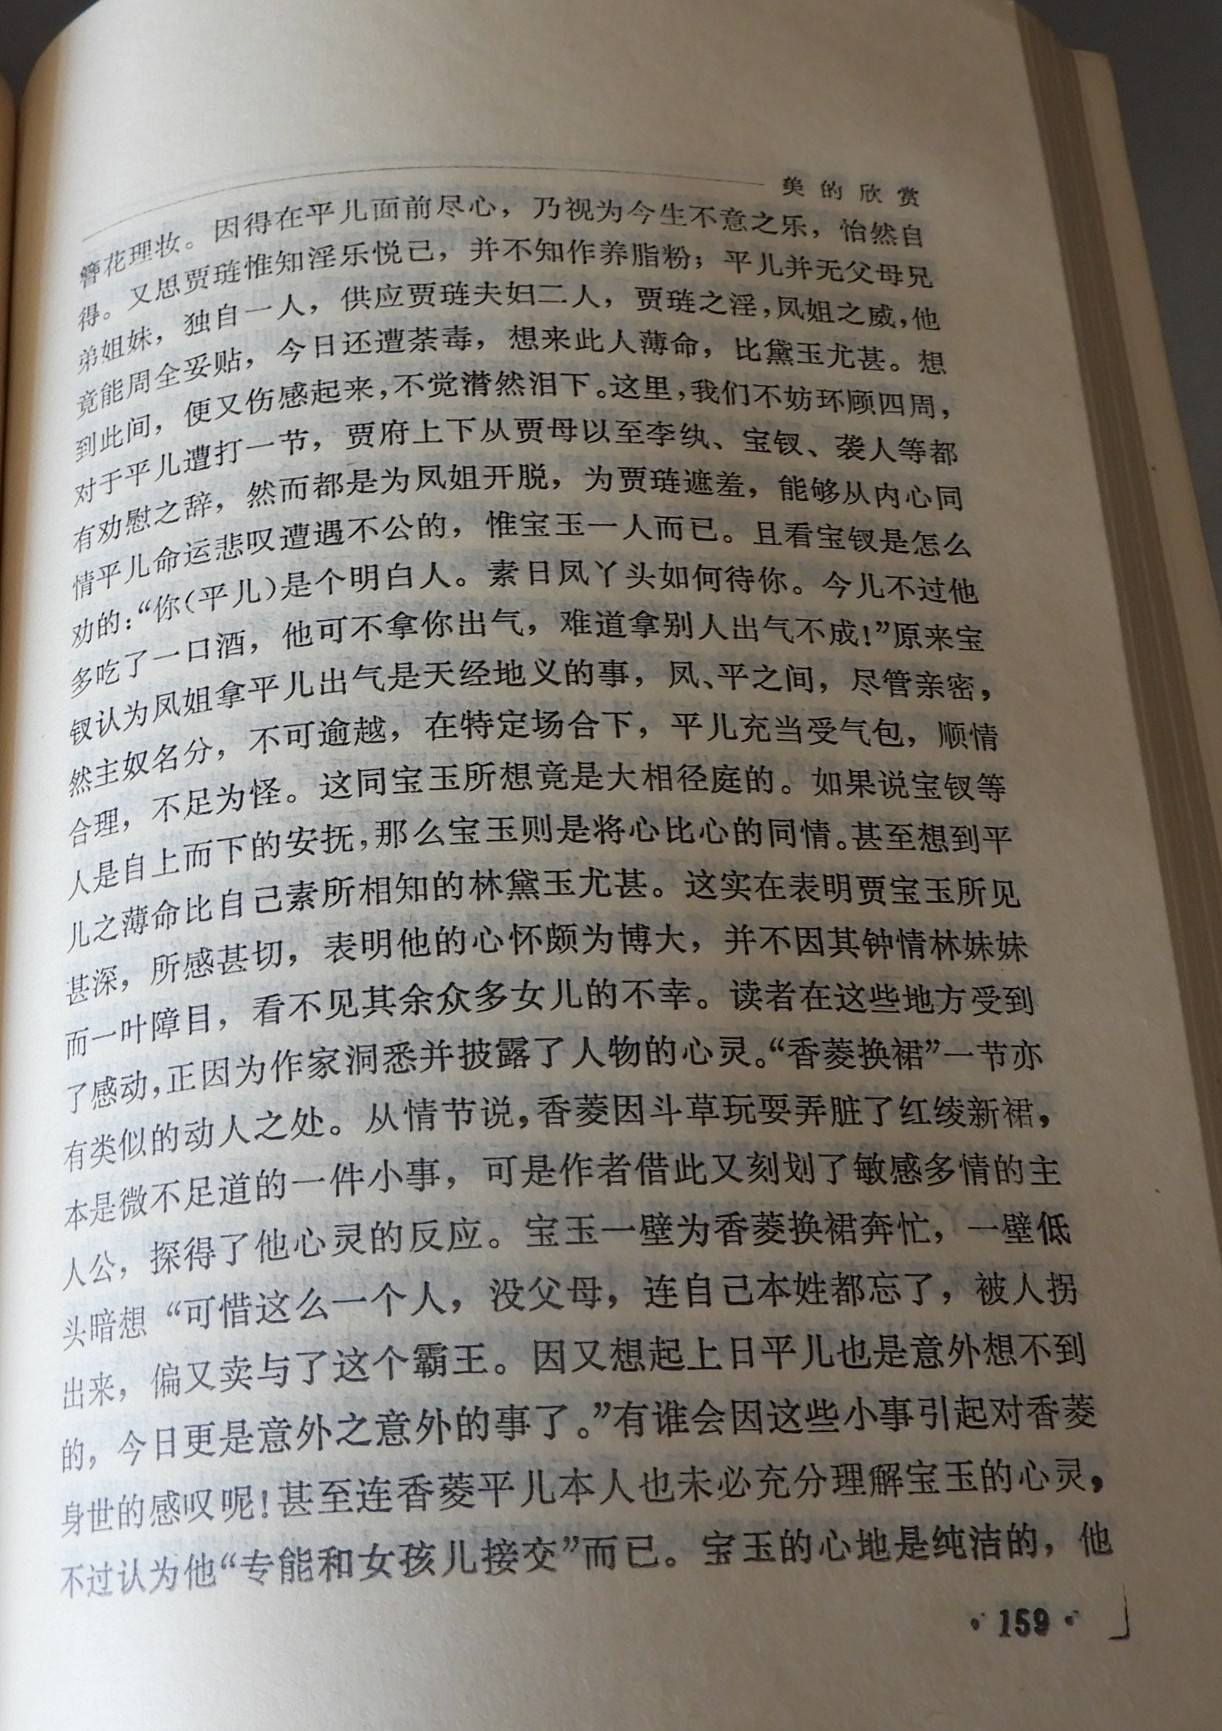 美的欣赏
簪花理妆。因得在平儿面前尽心，乃视为今生不意之乐，怡然自
得。又思贾琏惟知淫乐悦己，并不知作养脂粉；平儿并无父母兄
弟姐妹，独自一人，供应贾琏夫妇二人，贾琏之淫，凤姐之威，他
竟能周全妥贴，今日还遭荼毒，想来此人薄命，比黛玉尤甚。想
到此间，便又伤感起来，不觉潸然泪下。这里，我们不妨环顾四周，
对于平儿遭打一节，贾府上下从贾母以至李纨、宝钗、袭人等都
有劝慰之辞，然而都是为凤姐开脱，为贾琏遮羞，能够从内心同
情平儿命运悲叹遭遇不公的，惟宝玉一人而已。且看宝钗是怎么
劝的：“你(平儿)是个明白人。素日凤丫头如何待你。今儿不过他
多吃了一口酒，他可不拿你出气，难道拿别人出气不成！”原来宝
钗认为凤姐拿平儿出气是天经地义的事，凤、平之间，尽管亲密，
然主奴名分，不可逾越，在特定场合下，平儿充当受气包，顺情
合理，不足为怪。这同宝玉所想竟是大相径庭的。如果说宝钗等
人是自上而下的安抚，那么宝玉则是将心比心的同情。甚至想到平
儿之薄命比自己素所相知的林黛玉尤甚。这实在表明贾宝玉所见
甚深，所感甚切，表明他的心怀颇为博大，并不因其钟情林妹妹
而一叶障目，看不见其余众多女儿的不幸。读者在这些地方受到
了感动，正因为作家洞悉并披露了人物的心灵。“香菱换裙”一节亦
有类似的动人之处。从情节说，香菱因斗草玩耍弄脏了红绫新裙，
本是微不足道的一件小事，可是作者借此又刻划了敏感多情的主
人公，探得了他心灵的反应。宝玉一壁为香菱换裙奔忙，一壁低
头暗想“可惜这么一个人，没父母，连自己本姓都忘了，被人拐
出来，偏又卖与了这个霸王。因又想起上日平儿也是意外想不到
的，今日更是意外之意外的事了。”有谁会因这些小事引起对香菱
身世的感叹呢！甚至连香菱平儿本人也未必充分理解宝玉的心灵，
不过认为他“专能和女孩儿接交”而已。宝玉的心地是纯洁的，他
·159·